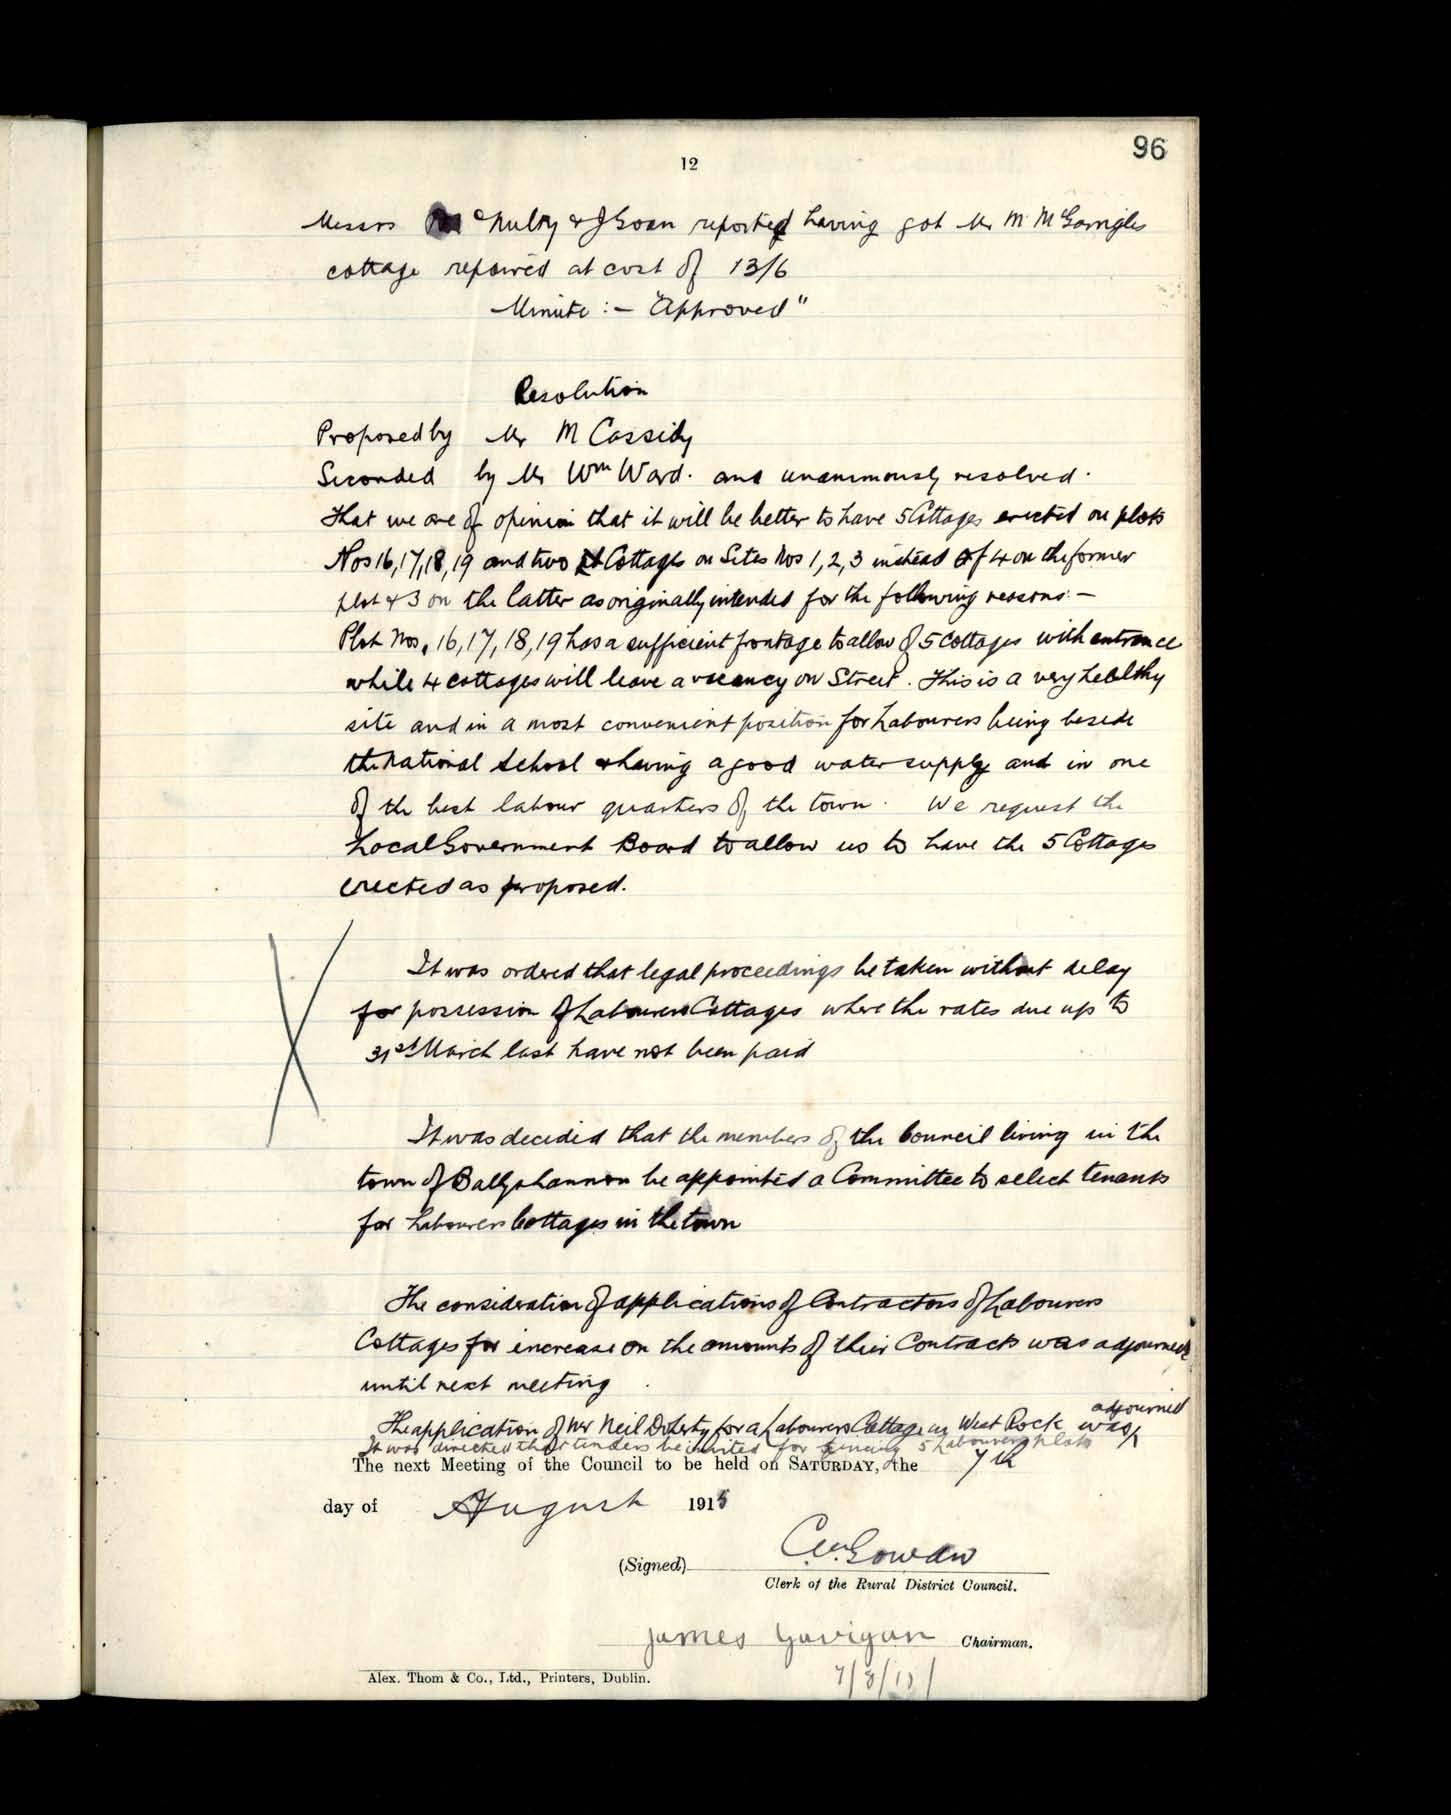 96
12
Messrs McNulty & J Goan reported having got Mr M McGarrigles
cottage repaired at cost of 13/6
Minute :- "Approved"
Resolution
Proposed by Mr M Cassidy
Seconded by Mr Wm Ward. and unanimously resolved.
That we are of opinion that it will be better to have 5 Cottages erected on plots
Nos 16, 17, 18, 19 and two Cottages on Sites Nos 1, 2, 3 instead of 4 on the former
plot & 3 on the latter as originally intended for the following reasons:-
Plot Nos, 16, 17, 18, 19 has a sufficient frontage to allow of 5 Cottages with entrance
while 4 cottages will leave a vacancy on Street. This is a very healthy
site and in a most convenient position for Labourers being beside
the National School & having a good water supply and in one
of the best labour quarters of the town. We request the
Local Government Board to allow us to have the 5 Cottages
erected as proposed.
It was ordered that legal proceedings be taken without delay
for possession of Labourers Cottages where the rates due up to
31st March last have not been paid
It was decided that the members of the Council living in the
town of Ballyshannon be appointed a Committee to select tenants
for Labourers Cottages in the town
The consideration of applications of Contractors of Labourers
Cottages for increase on the amounts of their Contracts was adjourned
until next meeting
The application of Mr Neil Doherty for a Labourers Cottage in West Rock was adjourned
It was directed that tenders be invited for fencing 5 Labourers plots
The next Meeting of the Council to be held on SATURDAY, the 7th
day of August 1915
(Signed) Gowan
Clerk of the Rural District Council.
James Gavigan Chairman.
7/8/15
Alex. Thom & Co., Ltd., Printers, Dublin.